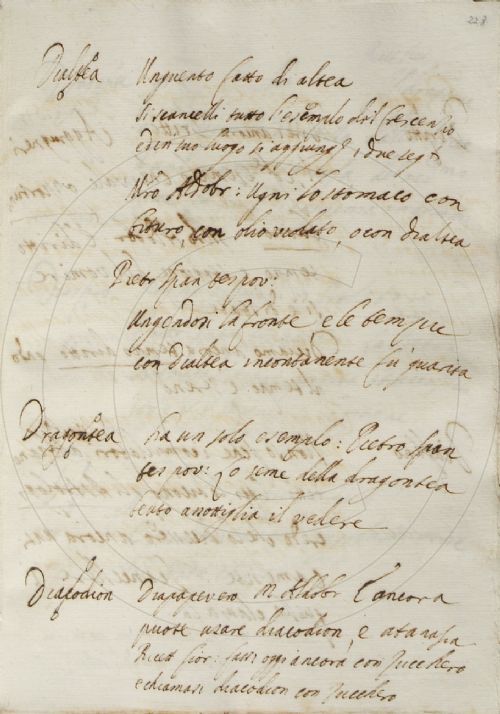 228
Dialtea Unguento fatto di altea
Si scancelli tutto l'esemplo del Crescenzio
ed in suo luogo si aggiung , due seg.ti
Mro Aldobr: Ugni lo stomaco con
bituro, con olio violato, o con dialtea
Pietr Span tes pov:
Ungendosi la fronte e le tempie
con dialtea incontanente fu guarita
Dragontea ha un solo esemplo: Pietro Span
tes pov: Lo seme della dragontea
beuto assottiglia il vedere
Diacodion Diapapevero M Aldobr E ancora
puote usare diacodion, e atanasia
Ricett fior: fassi oggi ancora con zucchero
e chiamasi diacodion con zucchero